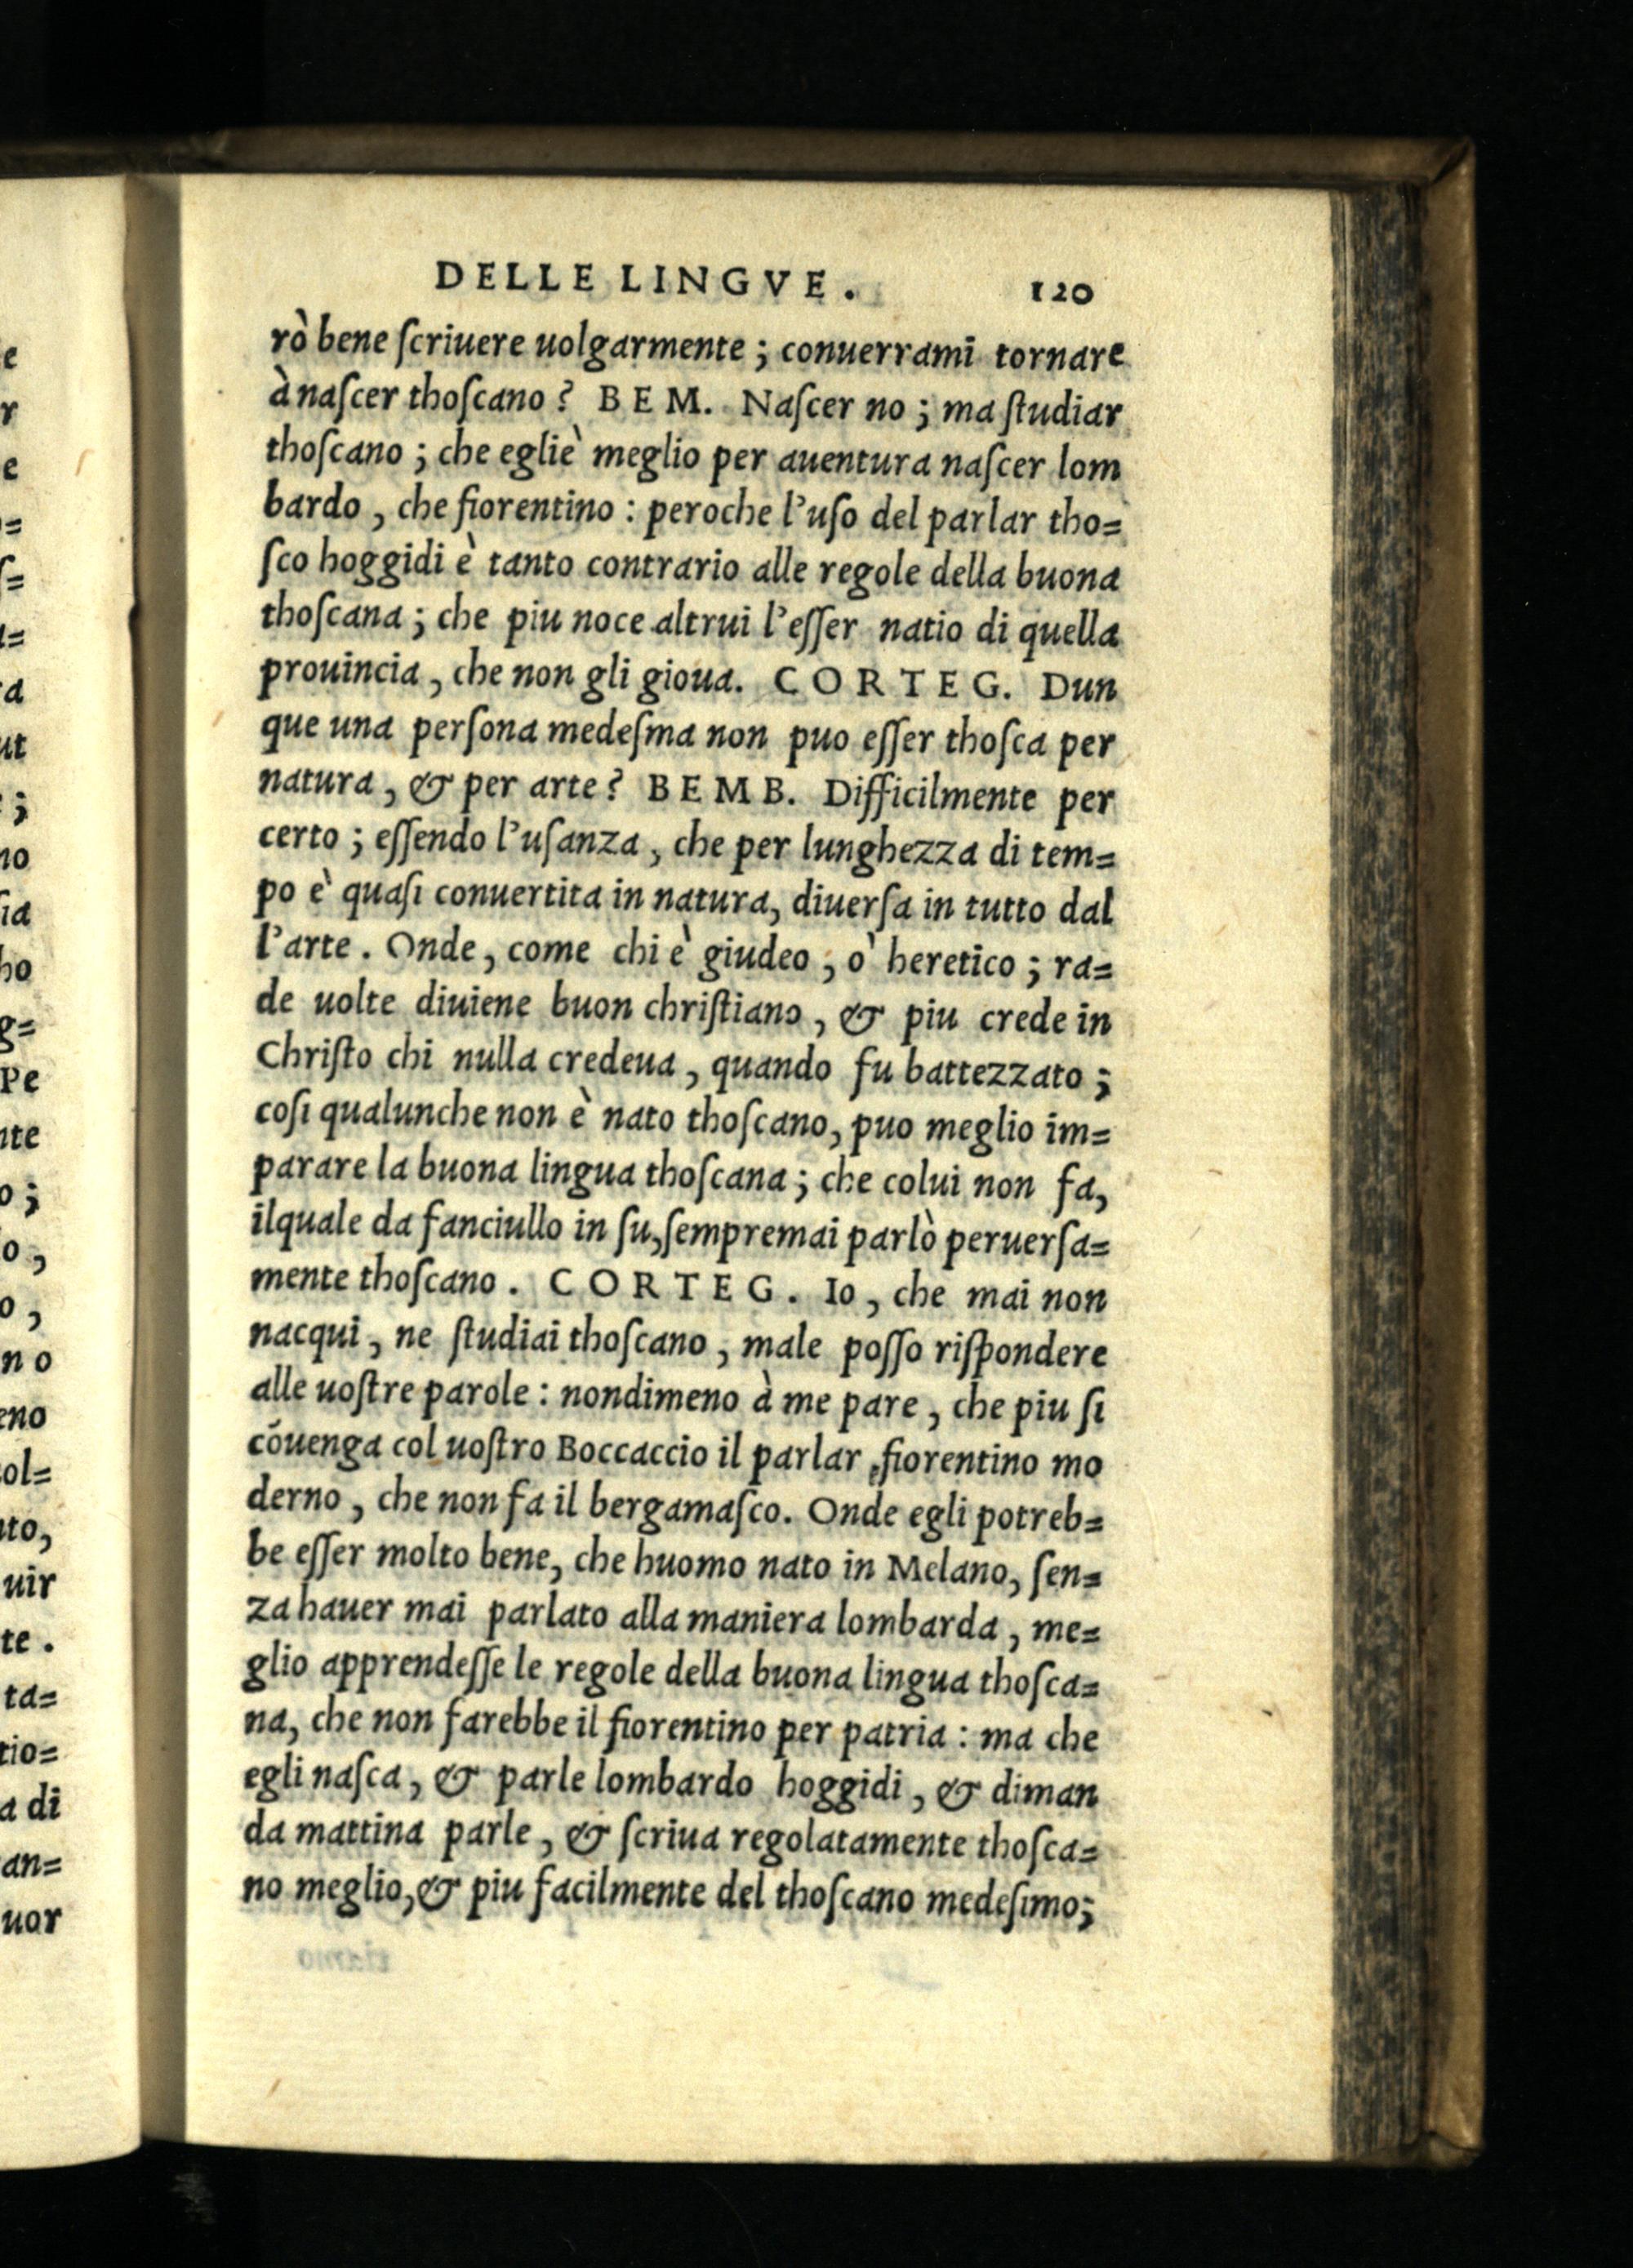 DELLE LINGVE. 120
rò bene ſcriuere uolgarmente ; conuerrami tornare
à naſcer thoſcano ? BEM. Naſcer no ; ma ſtudiar
thoſcano ; che egliè meglio per auentura naſcer lom
bardo , che fiorentino : peroche l'uſo del parlar tho=
ſco hoggidi è tanto contrario alle regole della buona
thoſcana ; che piu noce altrui l'eſſer natio di quella
prouincia , che non gli gioua. CORTEG. Dun
que una perſona medeſma non puo eſſer thoſca per
natura , & per arte ? BEMB. Difficilmente per
certo ; eſſendo l'uſanza , che per lunghezza di tem=
po è quaſi conuertita in natura, diuerſa in tutto dal
l'arte . Onde , come chi è giudeo , ò heretico ; ra=
de uolte diuiene buon chriſtiano , & piu crede in
Chriſto chi nulla credeua , quando fu battezzato ;
coſi qualunche non è nato thoſcano, puo meglio im=
parare la buona lingua thoſcana ; che colui non fa,
ilquale da fanciullo in ſu, ſempremai parlò peruerſa=
mente thoſcano . CORTEG. Io , che mai non
nacqui , ne ſtudiai thoſcano , male poſſo riſpondere
alle uoſtre parole : nondimeno à me pare , che piu ſi
cõuenga col uoſtro Boccaccio il parlar fiorentino mo
derno , che non fa il bergamaſco. Onde egli potreb=
be eſſer molto bene, che huomo nato in Melano, ſen=
za hauer mai parlato alla maniera lombarda , me=
glio apprendeſſe le regole della buona lingua thoſca=
na, che non farebbe il fiorentino per patria : ma che
egli naſca , & parle lombardo hoggidi , & diman
da mattina parle , & ſcriua regolatamente thoſca=
no meglio, & piu facilmente del thoſcano medeſimo;